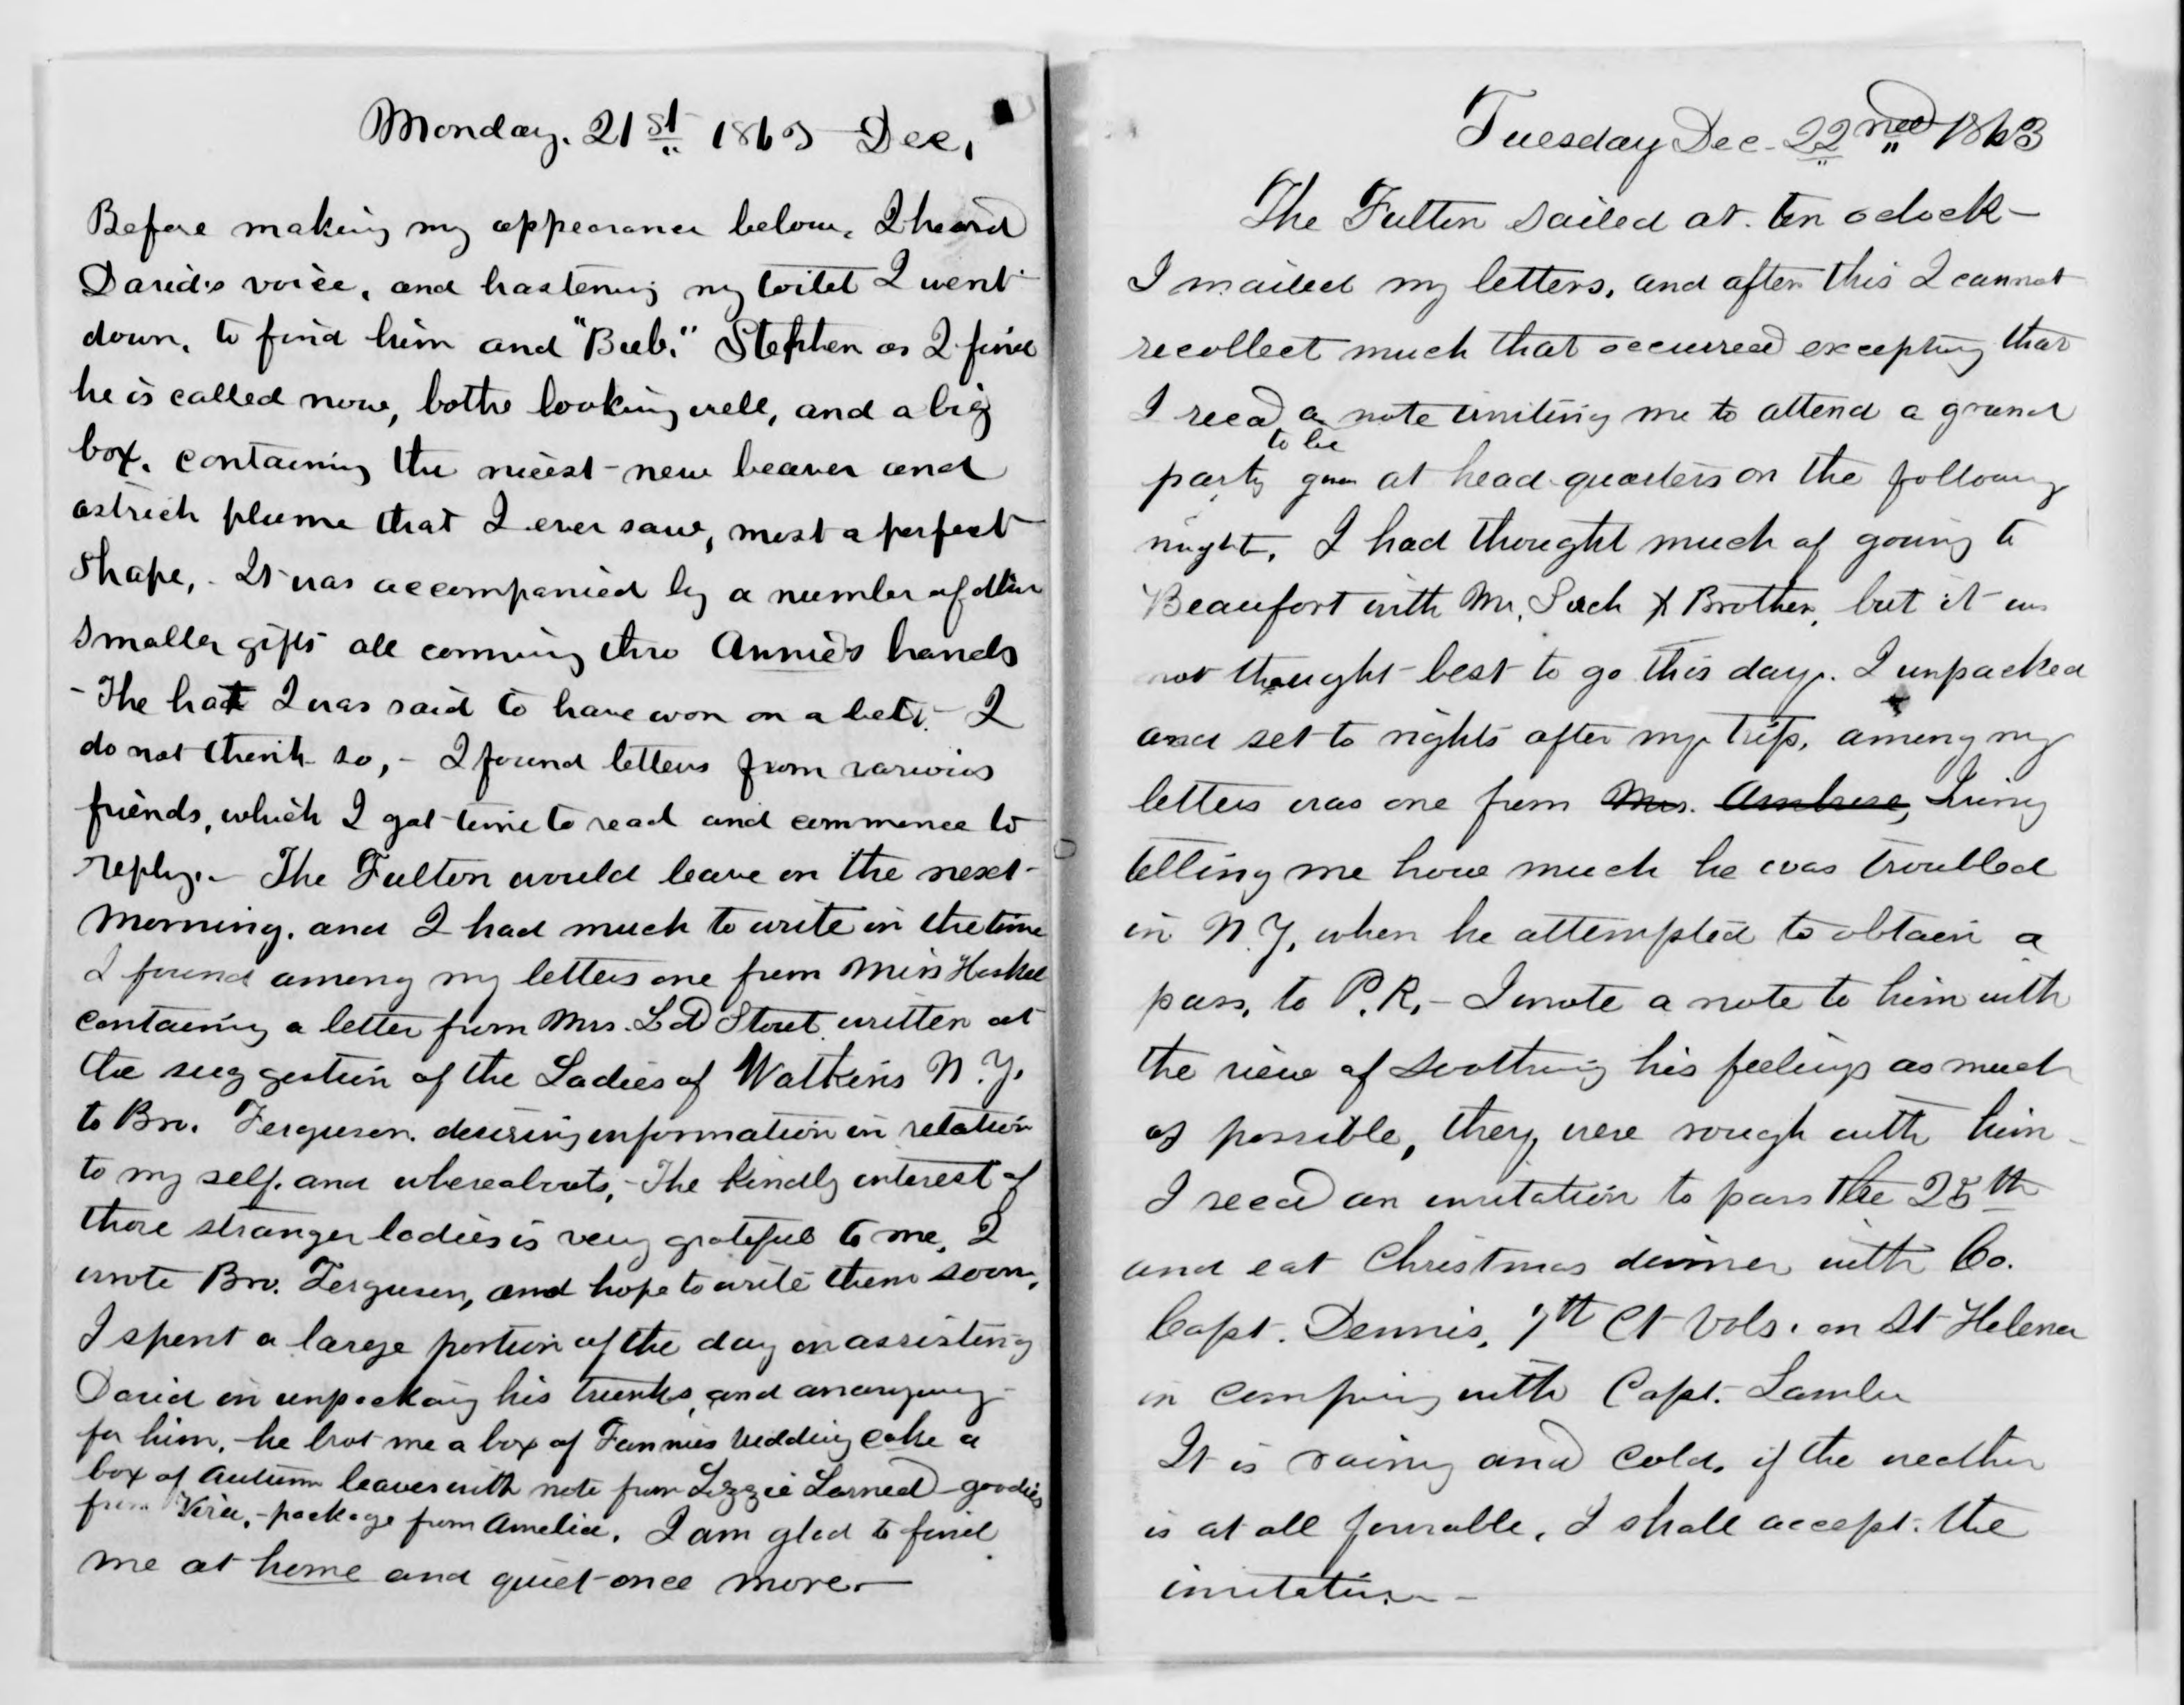 Monday. 21st 1863 Dec,
Before making my appearance below, I heard
David's voice, and hastening my toilet I went
down, to find him and "Bub." Stephen as I find
he is called now, both looking well, and a big
box. containing the nicest new beaver and
ostrich plume that I ever saw, most a perfect
shape, - It was accompanied by a number of other
smaller gifts all coming thro Annie's hands
- The hat I was said to have won on a bet. - I
do not think so, - I found letters from various
friends, which I got time to read and commence to
reply. - The Fulton would leave on the next
morning. and I had much to write in the time
I found among my letters one from Miss Haskel
containing a letter from Mrs. L D Stout written at
the suggestion of the Ladies of Watkins N.Y.
to Bro. Ferguson. desiring information in relation
to my self. and whereabouts, - The kindly interest of
those stranger ladies is very grateful to me, I
wrote Bro. Ferguson, and hope to write them soon,
I spent a large portion of the day in assisting
David in unpacking his trunks, and arranging
for him, he brot me a box of Fannies Wedding cake a
box of Autumn leaves with note from Lizzie Larned - goodies
from Vira, - package from Amelia. I am glad to find
me at home and quiet once more -
Tuesday Dec. 22nd 1863
The Fulton sailed at ten oclock -
I mailed my letters, and after this I cannot
recollect much that occurred excepting that
I recd a note inviting me to attend a grand
to be
party given at head-quarters on the following
night. I had thought much of going to
Beaufort with Mr. & Brother, but it was
not thought best to go this day. I unpacked
and set to rights after my trip, among my
letters was one from Mrs. Ambrose, Irving
telling me how much he was troubled
in N.Y, when he attempted to obtain a
pass, to P.R, - I wrote a note to him with
the view of soothing his feelings as much
as possible, they were rough with him -
I recd an invitation to pass the 25th
and eat Christmas dinner with Co.
Capt. Dennis, 7th Ct Vols. on St Helena
in company with Capt. Lamb
It is rainy and cold, if the weather
is at all favorable, I shall accept the
invitation -